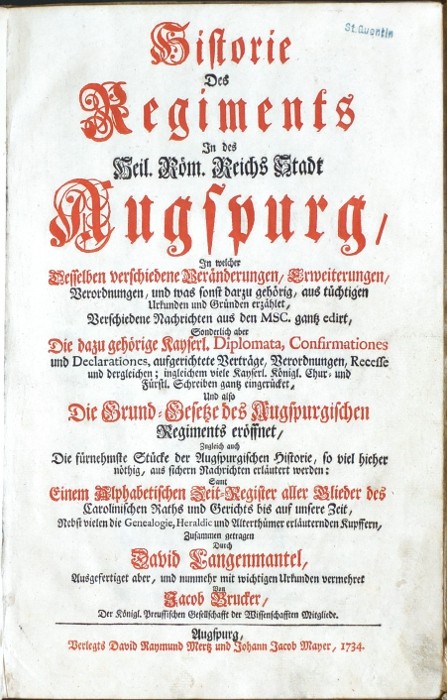 St. Quentin
Historie
Des
Regiments
In des
Heil. Röm. Reichs Stadt
Augspurg,
In welcher
Desselben verschiedene Veränderungen, Erweiterungen,
Verordnungen, und was sonst darzu gehörig, aus tüchtigen
Urkunden und Gründen erzählet,
Verschiedene Nachrichten aus den MSC. gantz edirt,
Sonderlich aber
Die dazu gehörige Kayserl. Diplomata, Confirmationes
und Declarationes, aufgerichtete Verträge, Verordnungen, Recesse
und dergleichen; ingleichem viele Kayserl. Königl. Chur- und
Fürstl. Schreiben gantz eingerücket,
Und also
Die Grund-Gesetze des Augspurgischen
Regiments eröffnet,
Zugleich auch
Die fürnehmste Stücke der Augspurgischen Historie, so viel hieher
nöthig, aus sichern Nachrichten erläutert werden:
Samt
Einem Alphabetischen Zeit-Register aller Glieder des
Carolinischen Raths und Gerichts bis auf unsere Zeit,
Nebst vielen die Genealogie, Heraldic und Alterthümer erläuternden Kupffern,
Zusammen getragen
Durch
David Langenmantel,
Ausgefertiget aber, und nunmehr mit wichtigen Urkunden vermehret
Von
Jacob Brucker,
Der Königl. Preussischen Gesellschafft der Wissenschafften Mitgliede.
Augspurg,
Verlegts David Raymund Mertz und Johann Jacob Mayer, 1734.